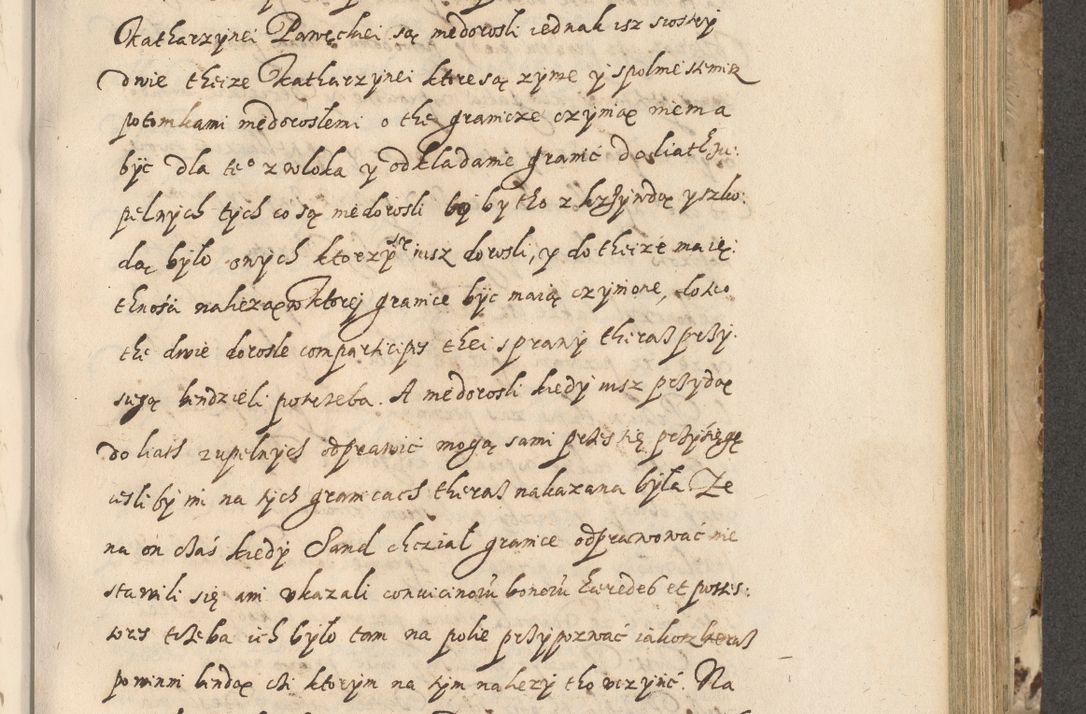 Katharzynei Pawęckiei są niedorosli iednak isz siostry
dwie theize Katharzynei ktore są zyme y spolnie s temisz
potomkami niedoroslemi o the granicze czynią niema
być dla te° zwloka y odkladanie granic do liath zu:
pelnych tych co są niedorosli by bytho z krzywdą y szko:
dą bylo onych ktorzy se iusz dorosli, y do theize maię:
thnosci nalezą w ktorej granice być maią czynione, dosco
the dwie dorosle comparticipes thei sprawy theraz przy:
sięgą bindzieli potrzeba. A niedorosli kiedy iusz przydą
do liath zupelnych odprawic mogą sami przes się przysięgę
iesliby im na tych granicach theraz nakazana byla Ze
na on czas kiedy Sand chczial granice odprawować nie
stawili się ani ukazali convicinorū bonorū haeredes et posses:
sores trzeba ich bylo tam na polie przypozwać iakosz theraz
powinni bindą ci ktorym na tym nalezy tho uczynić. Na